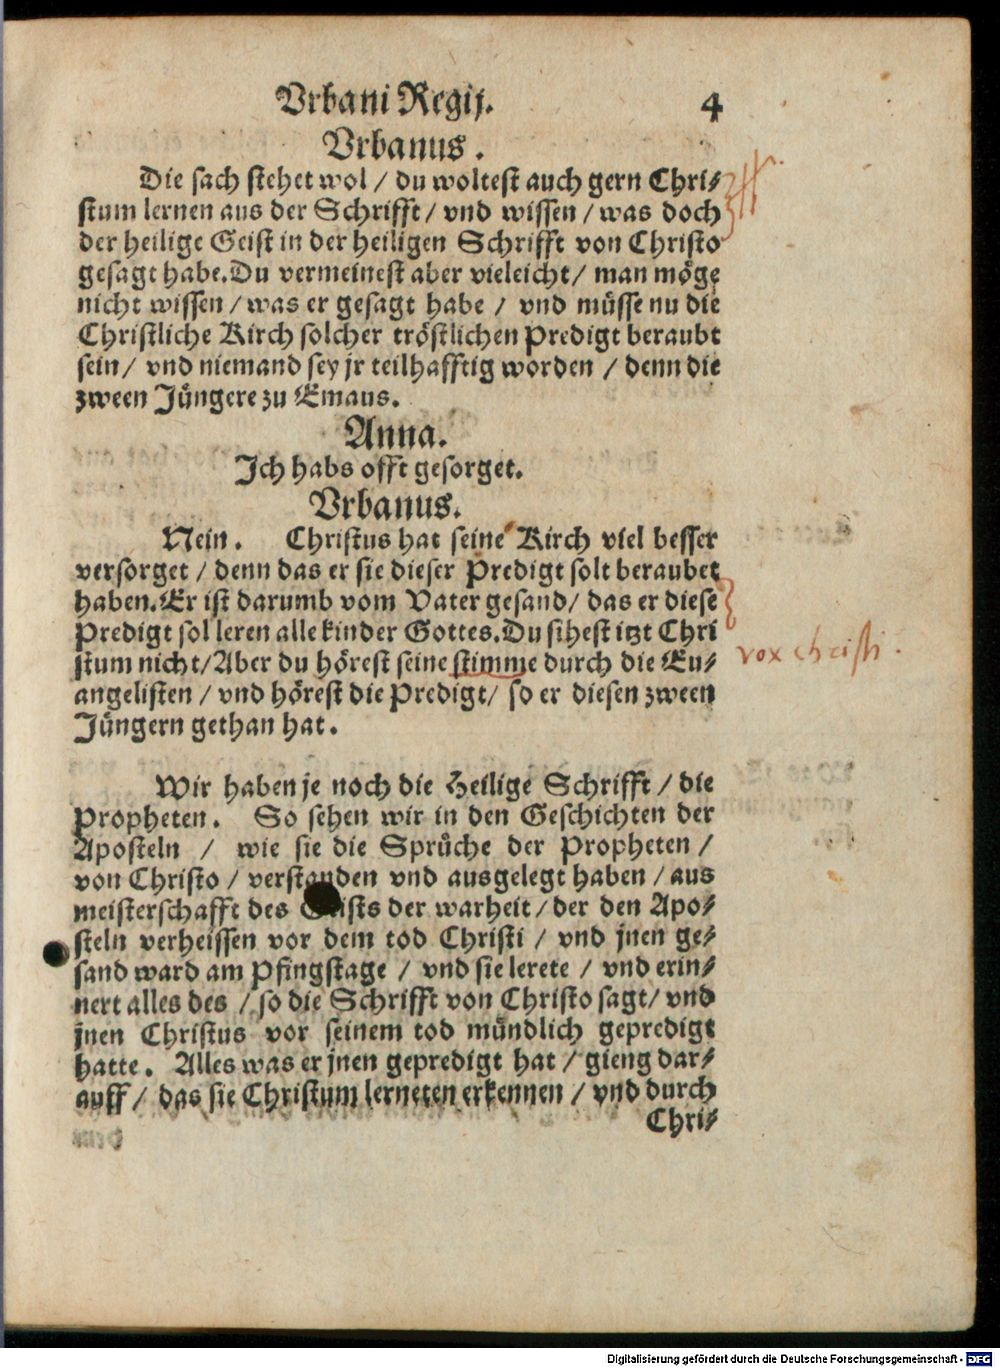 Vrbani Regij. 4
Vrbanus.
Die sach stehet wol / du woltest auch gern Chri-
stum lernen aus der Schrifft / vnd wissen / was doch
der heilige Geist in der heiligen Schrifft von Christo
gesagt habe. Du vermeinest aber vieleicht / man möge
nicht wissen / was er gesagt habe / vnd müsse nu die
Christliche Kirch solcher tröstlichen Predigt beraubt
sein / vnd niemand sey jr teilhafftig worden / denn die
zween Jüngere zu Emaus.
Anna.
Ich habs offt gesorget.
Vrbanus.
Nein. Christus hat seine Kirch viel besser
versorget / denn das er sie dieser Predigt solt beraubet
haben. Er ist darumb vom Vater gesand / das er diese
Predigt sol leren alle kinder Gottes. Du sihest itzt Chri
stum nicht / Aber du hörest seine stimme durch die Eu-
vox christi.
angelisten / vnd hörest die Predigt / so er diesen zween
Jüngern gethan hat.
Wir haben je noch die Heilige Schrifft / die
Propheten. So sehen wir in den Geschichten der
Aposteln / wie sie die Sprüche der Propheten /
von Christo / verstanden vnd ausgelegt haben / aus
meisterschafft des Geists der warheit / der den Apo-
steln verheissen vor dem tod Christi / vnd jnen ge-
sand ward am Pfingstage / vnd sie lerete / vnd erin-
nert alles des / so die Schrifft von Christo sagt / vnd
jnen Christus vor seinem tod mündlich gepredigt
hatte. Alles was er jnen gepredigt hat / gieng dar-
auff / das sie Christum lerneten erkennen / vnd durch
Chri-
Digitalisierung gefördert durch die Deutsche Forschungsgemeinschaft - DFG